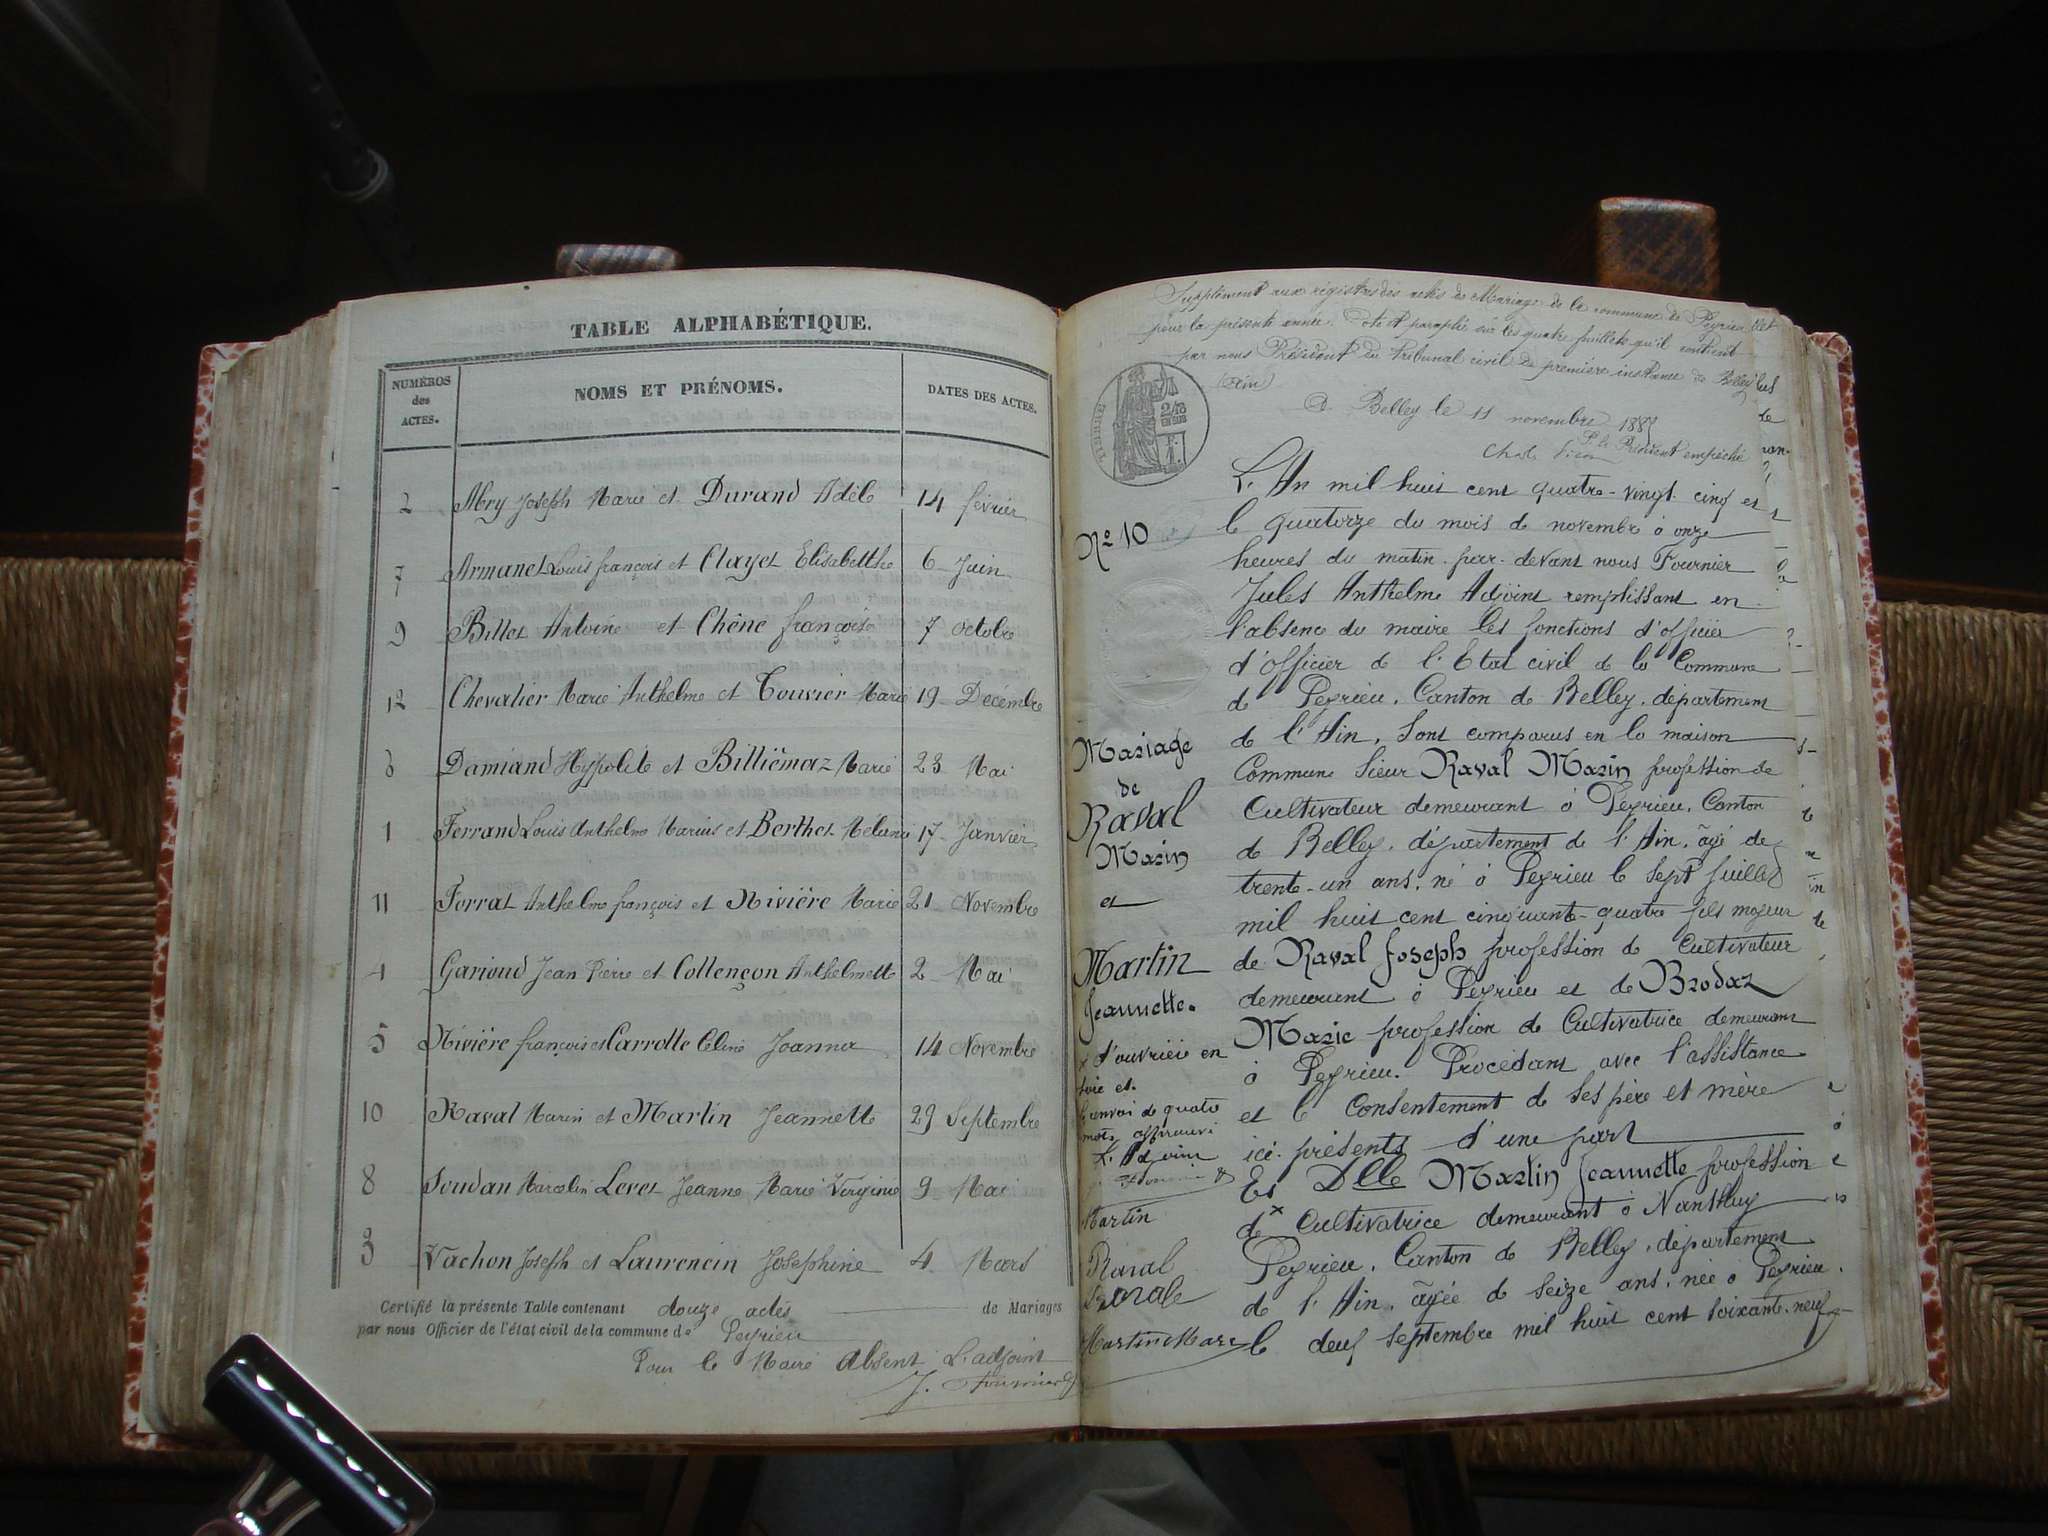 TABLE ALPHABÉTIQUE.
NUMÉROS des ACTES. NOMS ET PRÉNOMS. DATES DES ACTES.
2 Joseph Marie et Durand Adèle 14 février
7 Armanet Louis françois et Clayet Elisabetthe 6 Juin
9 Billet Antoine et Chêne françoise 7 Octobre
12 Chevalier Marie Anthelme et Touvier Marie 19 Décembre
6 Damiand Hypolite et Billiémaz Marie 23 Mai
1 Ferrand Louis Anthelme Marius et Berthet Melanie 17 Janvier
11 Anthelme françois et Rivière Marie 21 Novembre
4 Garioud Jean Pierre et Collençon Anthelmette 2 Mai
5 Rivière françois et Carrotte Céline Joanna 14 Novembre
10 Raval Marin et Martin Jeannette 29 Septembre
8 Soudan Marcelin Levet Jeanne Marie Virginie 9 Mai
3 Vachon Joseph et Laurencin Joséphine 4 Mars
Certifié la présente Table contenant douze actes de Mariages
par nous Officier de l'état civil de la commune de Peyrieu
Pour le Maire Absent L'adjoint
J. Fournier
Supplément aux régistres des actes de Mariage de la commune de Peyrieu
pour la présente année. Coté et paraphé sur les quatre feuillets qu'il contient
par nous Président du tribunal civil de première instance de Belley
(Ain)
A Belley le 11 novembre 188
P. le Président empêché
L'An mil huit cent quatre-vingt cinq et
le quatorze du mois de novembre à onze
heures du matin par-devant nous Fournier
Jules Anthelme Adjoint remplissant en
l'absence du maire les fonctions d'officier
d'officier de l'Etat civil de la Commune
de Peyrieu, Canton de Belley, département
de l'Ain, Sont comparus en la maison
Commune Sieur Raval Marin profession de
Cultivateur demeurant à Peyrieu, Canton
de Belley, département de l'Ain, âgé de
trente-un ans, né à Peyrieu le sept juillet
mil huit cent cinquante-quatre fils majeur
de Raval Joseph profession de Cultivateur
demeurant à Peyrieu et de Brodaz
Marie profession de Cultivatrice demeurant
à Peyrieu. Procédant avec l'assistance
et le Consentement de ses père et mère
ici présents d'une part
Et Dlle Martin Jeannette profession
de x Cultivatrice demeurant à Nanthuy
Peyrieu, Canton de Belley, département
de l'Ain, âgée de seize ans, née à Peyrieu
le deux septembre mil huit cent soixante-neuf
No 10
Mariage
de
Raval
Marin
et
Martin
Jeannette.
x d'ouvrière en
soie et.
le renvoi de quatre
mots approuvé
L'Adjoint
Fournier
Martin
Raval
Martin Marc